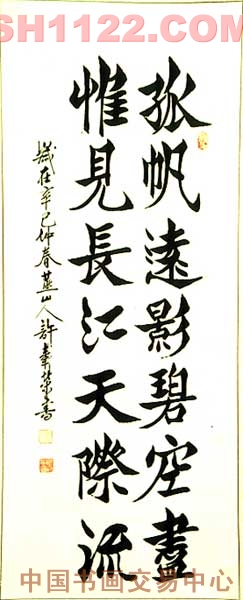 SH1122.COM
孤帆遠影碧空盡
惟見長江天際流
歲在辛巳仲春燕山人許奉榮書
中国书画交易中心